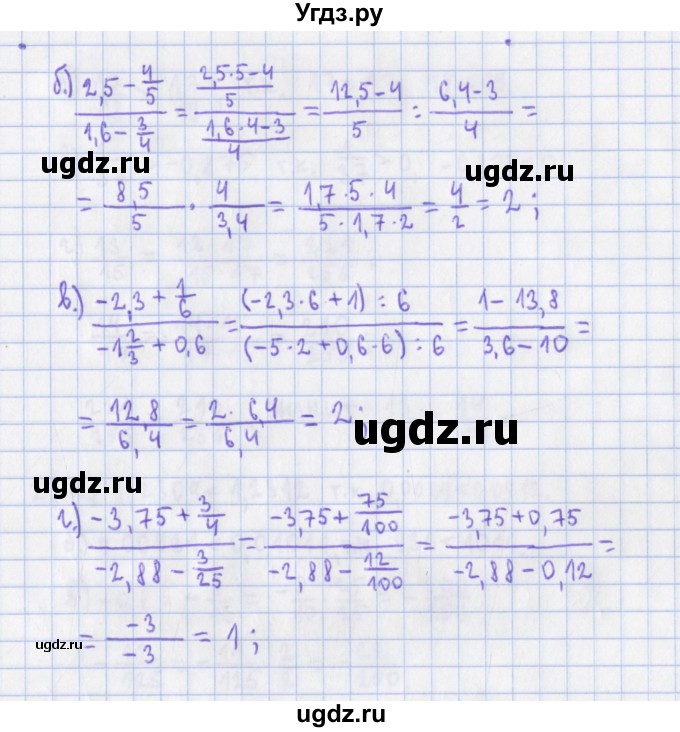 Угдз.ру
б.) (2,5 - 4/5)/(1,6 - 3/4) = ((2,5·5-4)/5)/((1,6·4-3)/4) = (12,5-4)/5 : (6,4-3)/4 =
ugdz.ru
ugdz.ru
= 8,5/5 · 4/3,4 = (1,7·5·4)/(5·1,7·2) = 4/2 = 2;
в.) (-2,3 + 1/6)/(-1 2/3 + 0,6) = ((-2,3·6+1):6)/((-5·2+0,6·6):6) = (1-13,8)/(3,6-10) =
= 12,8/6,4 = (2·6,4)/6,4 = 2;
ugdz.ru
ugdz.ru
г.) (-3,75 + 3/4)/(-2,88 - 3/25) = (-3,75 + 75/100)/(-2,88 - 12/100) = (-3,75+0,75)/(-2,88-0,12) =
= -3/-3 = 1;
ugdz.ru
ugdz.ru
ugdz.ru